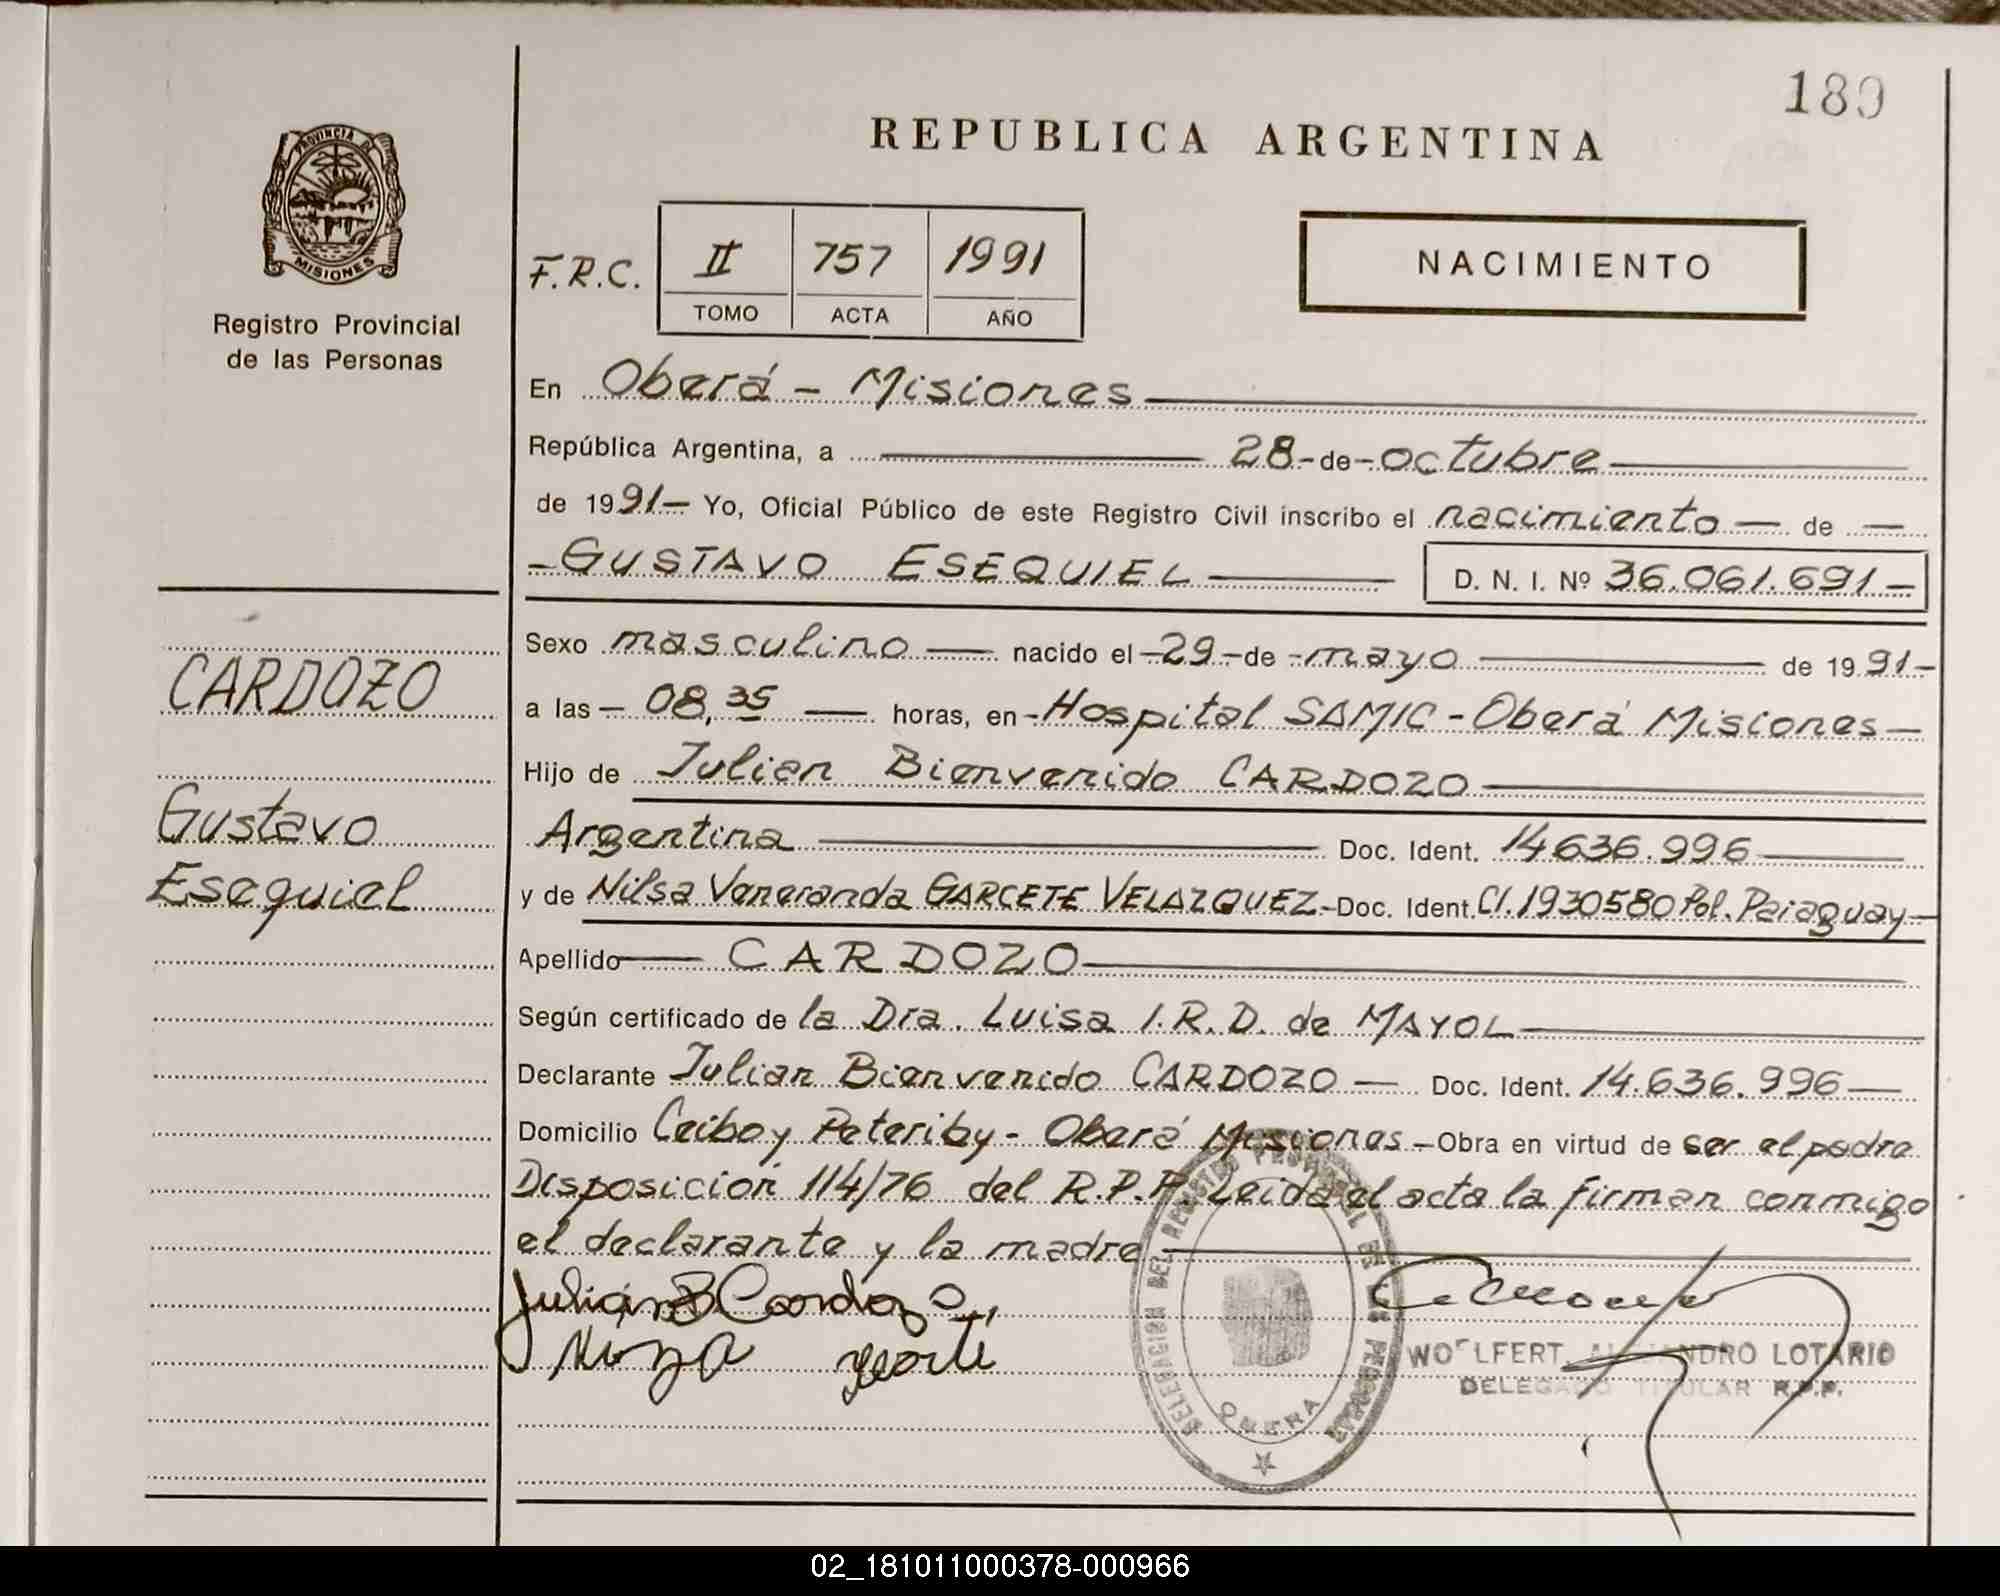 189
REPUBLICA ARGENTINA
PROVINCIA DE
MISIONES
Registro Provincial
de las Personas
F.R.C. II 757 1991
TOMO ACTA AÑO
NACIMIENTO
En Oberá - Misiones
República Argentina, a 28 - de - octubre
de 1991 - Yo, Oficial Público de este Registro Civil inscribo el nacimiento - de -
- GUSTAVO ESEQUIEL D. N. I. Nº 36.061.691 -
CARDOZO
Gustavo
Esequiel
Sexo masculino - nacido el - 29 - de - mayo de 1991 -
a las - 08,35 - horas, en - Hospital SAMIC - Oberá Misiones -
Hijo de Julian Bienvenido CARDOZO
Argentina Doc. Ident. 14.636.996
y de Nilsa Veneranda GARCETE VELAZQUEZ - Doc. Ident. CI. 1930580 Pol. Paraguay -
Apellido CARDOZO
Según certificado de la Dra. Luisa I.R.D. de MAYOL
Declarante Julian Bienvenido CARDOZO - Doc. Ident. 14.636.996
Domicilio Ceibo y Peteriby - Oberá Misiones - Obra en virtud de ser el padre
Disposición 114/76 del R.P.P. Leida el acta la firman conmigo
el declarante y la madre
Julián B Cardozo
DELEGACION DEL REGISTRO PROVINCIAL DE LAS PERSONAS
WOLFERT, ALEJANDRO LOTARIO
DELEGADO TITULAR R.P.P.
02_181011000378-000966